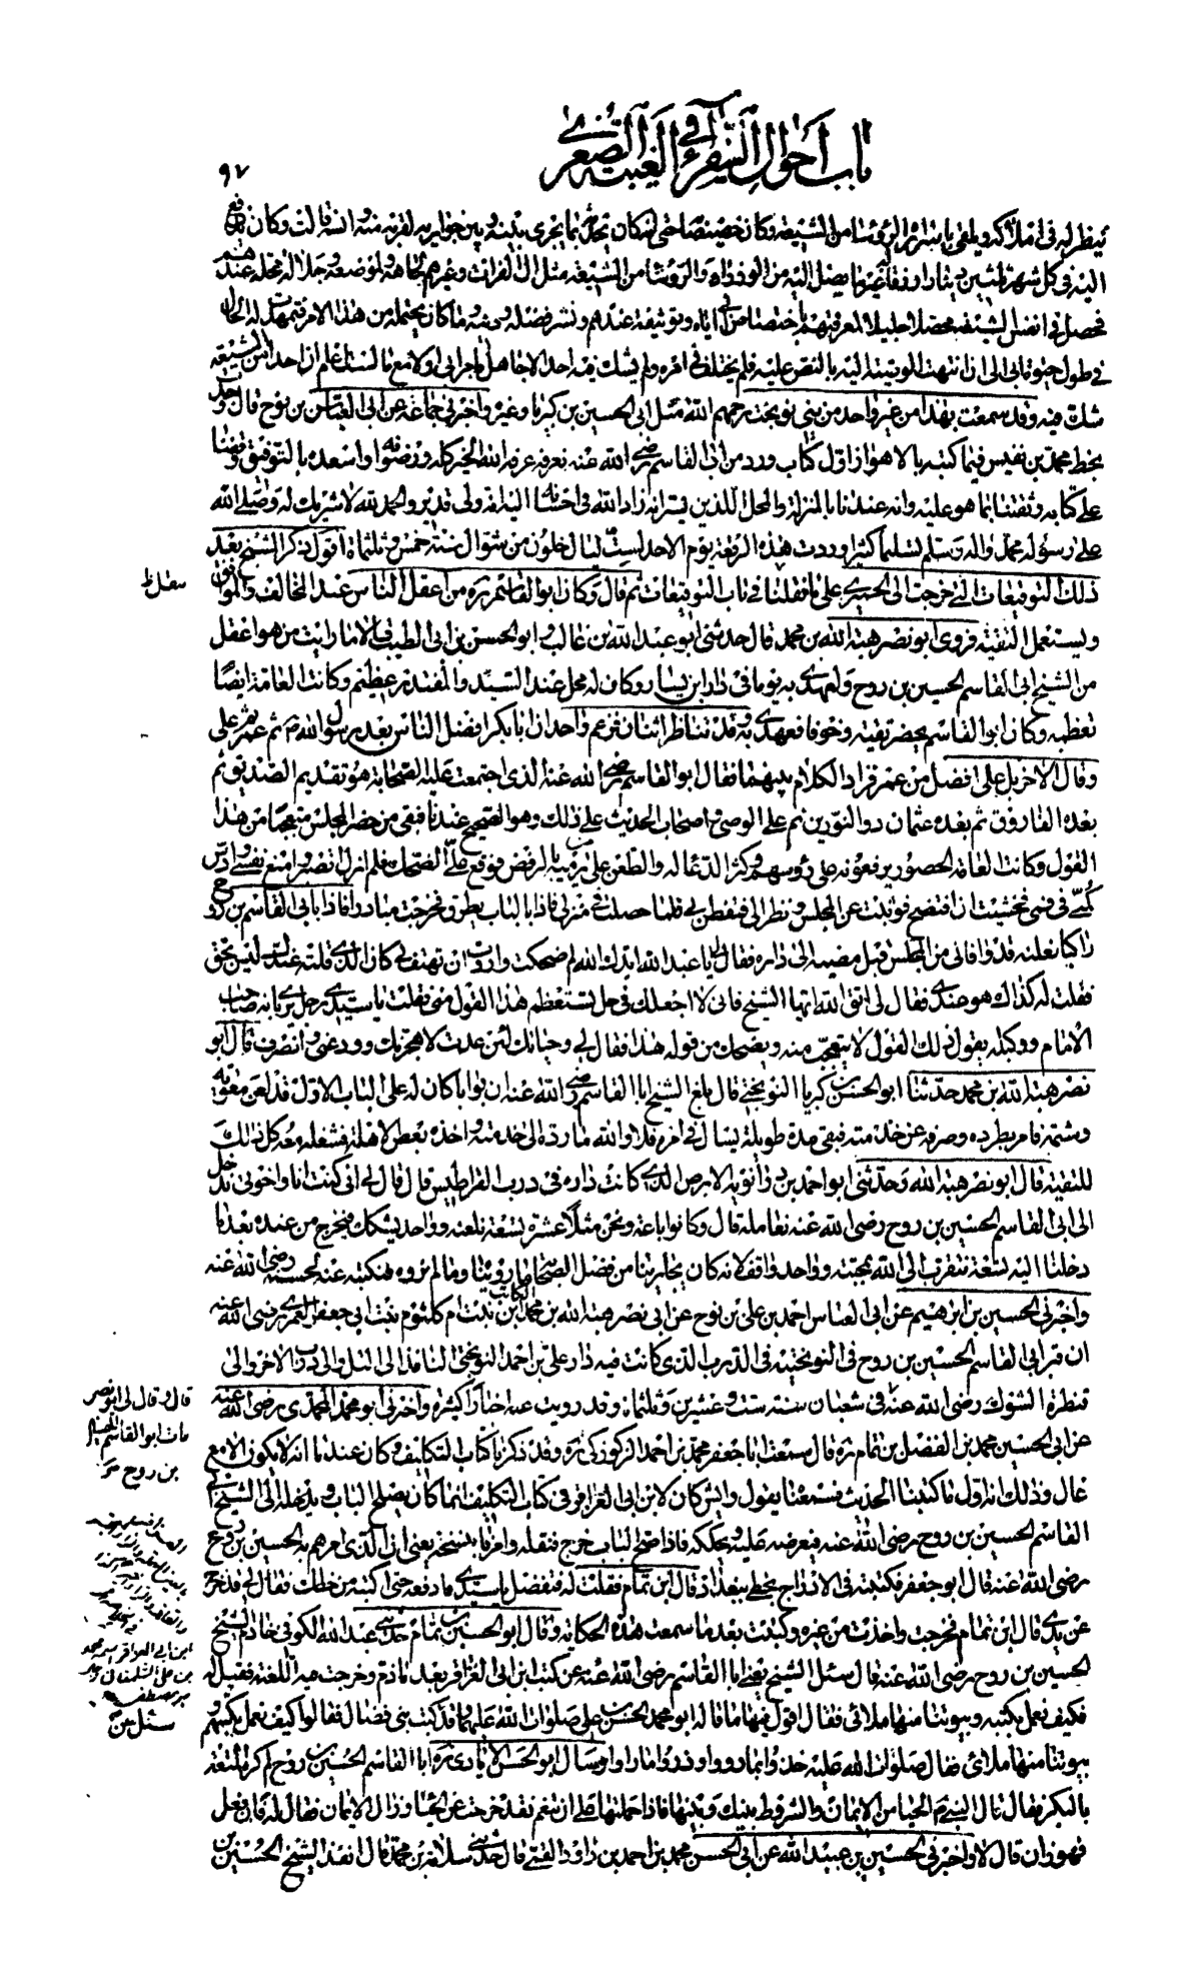 باب احوال السفراء في الغيبة الصغرى
٩٧
ينظر له في املاكه ويلقى باسراره الرؤسا من الشيعة وكان خصيصا به حتى انه كان يحدثه بما يجرى بينه وبين جواريه لقربه منه وانسه قالت وكان يدفع
اليه في كل شهر ثلثين دينارا رزقا غير ما يصل اليه من الوزراء والرؤسا من الشيعة مثل ال الفرات وغيرهم لجاهه ولموضعه وجلالة محله عندهم
فحصل في انفس الشيعة محصلا جليلا لمعرفتهم باختصاص ابي اياه وتوثيقه عندهم ونشر فضله ودينه وما كان يحتمله من هذا الامر فتمهدت له الحال
في طول حيوة ابي الى ان انتهت الوصية اليه بالنص عليه فلم يختلف في امره ولم يشك فيه احد الا جاهل بامر ابي اولا مع ما لست اعلم ان احدا من الشيعة
شك فيه وقد سمعت بهذا من غير واحد من بني نوبخت رحمهم الله مثل ابي الحسين بن كبريا وغيره واخبرني جماعة عن ابي العباس بن نوح قال وجدت
بخط محمد بن نفيس فيما كتبه بالاهواز اول كتاب ورد من ابي القاسم رضي الله عنه نعرفه عرفه الله الخير كله ورضوانه واسعده بالتوفيق وقفنا
على كتابه وثقتنا بما هو عليه وانه عندنا بالمنزلة والمحل اللذين يسرانه زاد الله في احسانه اليه انه ولي قدير والحمد لله لا شريك له وصلى الله
على رسوله محمد واله وسلم تسليما كثيرا وردت هذه الرقعة يوم الاحد لست ليال خلون من شوال سنة خمس وثلثمائة اقول ذكر الشيخ بعد
ذلك التوقيعات التي خرجت الى الحميري على ما نقلناه في باب التوقيعات ثم قال وكان ابو القاسم ره من اعقل الناس عند المخالف والموافق
ويستعمل التقية فروى ابو نصر هبة الله بن محمد قال حدثني ابو عبد الله بن غالب و ابو الحسن بن ابي الطيب قالا ما رايت من هو اعقل
من الشيخ ابي القاسم الحسين بن روح ولعهدي به يوما في دار ابن يسار وكان له محل عند السيد والمقتدر عظيم وكانت العامة ايضا
تعظمه وكان ابو القاسم يحضر تقية وخوفا فعهدي به وقد تناظر اثنان فزعم واحد ان ابا بكر افضل الناس بعد رسول الله ص ثم عمر ثم علي
وقال الاخر بل علي افضل من عمر فزاد الكلام بينهما فقال ابو القاسم رضي الله عنه الذي اجتمعت عليه الصحابة هو تقديم الصديق ثم
بعده الفاروق ثم بعده عثمان ذو النورين ثم علي الوصي واصحاب الحديث على ذلك وهو الصحيح عندنا فبقي من حضر المجلس متعجبا من هذا
القول وكانت العامة الحضور يرفعونه على رؤسهم وكثر الدعا له والطعن على من يرميه بالرفض فوقع علي الضحك فلم ازل اتصبر وامنع نفسي وادس
كمي في فمي فخشيت ان افتضح فوثبت عن المجلس ونظر الي فتفطن لي فلما حصلت في منزلي فاذا بالباب يطرق فخرجت مبادرا فاذا بابي القاسم بن روح
راكبا بغلته قد وافاني من المجلس قبل مضيه الى داره فقال لي يا عبد الله ايدك الله لم ضحكت واردت ان تهتف بي كان الذي قلته عندك ليس بحق
فقلت له كذاك هو عندي فقال لي اتق الله ايها الشيخ فاني لا اجعلك في حل تستعظم هذا القول مني فقلت يا سيدي رجل يرى بانه صاحب
الامام ووكيله يقول ذلك القول لا يتعجب منه ويضحك من قوله هذا فقال لي وحياتك لئن عدت لاهجرنك وودعني وانصرف قال ابو
نصر هبة الله بن محمد حدثنا ابو الحسن بن كبريا النوبختي قال بلغ الشيخ ابا القاسم رضي الله عنه ان بوابا كان له على الباب الاول قد لعن معوية
وشتمه فامر بطرده وصرفه عن خدمته فبقي مدة طويلة يسال في امره فلا والله ما رده الى خدمته واخذه بعض الاهل فشغله معه كل ذلك
للتقية قال ابو نصر هبة الله وحدثني ابو احمد بن درانويه الابرص الذي كانت داره في درب القراطيس قال قال لي اني كنت انا واخوتي ندخل
الى ابي القاسم الحسين بن روح رضي الله عنه نعامله قال وكانوا باعة ونحن مثلا عشرة تسعة نلعنه وواحد يشكك فنخرج من عنده بعد ما
دخلنا اليه تسعة نتقرب الى الله بمحبته وواحد واقف لانه كان يجارينا من فضل الصحابة ما رويناه وما لم نروه فنكتبه عنه لحسنه رضي الله عنه
واخبرني الحسين بن ابرهيم عن ابي العباس احمد بن علي بن نوح عن ابي نصر هبة الله بن محمد الكاتب ابن بنت ام كلثوم بنت ابي جعفر العمري رضي الله عنه
ان قبر ابي القاسم الحسين بن روح في النوبختية في الدرب الذي كانت فيه دار علي بن احمد النوبختي النافذ الى التل والى درب الاخر والى
قنطرة الشوك رضي الله عنه في شعبان سنة ست وعشرين وثلثمائة وقد رويت عنه اخبارا كثيرة واخبرني ابو محمد المحمدي رضي الله عنه
عن ابي الحسين محمد بن الفضل بن تمام ره قال سمعت ابا جعفر محمد بن احمد الزكوزكي ره وقد ذكرنا كتاب التكليف وكان عندنا انه لا يكون الا مع
غال وذلك انه اول ما كتبنا الحديث فسمعناه يقول وايش كان لابن ابي العزاقر في كتاب التكليف انما كان يصلح الباب ويدخله الى الشيخ ابي
القاسم الحسين بن روح رضي الله عنه فيعرضه عليه ويحككه فاذا صح الباب خرج فنقله وامرنا بنسخه يعني ان الذي امرهم به الحسين بن روح
رضي الله عنه قال ابو جعفر فكتبته في الادراج بخطي ببغداد قال ابن تمام فقلت له فتفضل يا سيدي فادفعه حتى اكتبه من خطك فقال لي قد خرج
عن يدي قال ابن تمام فخرجت واخذت من غيره وكتبت بعد ما سمعت هذه الحكاية وقال ابو الحسين بن تمام حدثني عبد الله الكوفي خادم الشيخ
الحسين بن روح رضي الله عنه قال سئل الشيخ يعني ابا القاسم رضي الله عنه عن كتب ابن ابي العزاقر بعد ما ذم وخرجت فيه اللعنة فقيل له
فكيف نعمل بكتبه وبيوتنا منها ملائى فقال اقول فيها ما قاله ابو محمد الحسن بن علي صلوات الله عليهما وقد سئل عن كتب بني فضال فقالوا كيف نعمل بكتبهم و
بيوتنا منها ملائى فقال صلوات الله عليه خذوا بما رووا وذروا ما راوا وسال ابو الحسن الايادي ره ابا القاسم الحسين بن روح لم كره المتعة
بالبكر فقال قال النبي ص الحيا من الايمان والشروط بينك وبينها فاذا حملتها على ان تنعم فقد خرجت عن الحيا وزال الايمان فقال له فان فعل
فهو زان قال لا واخبرني الحسين بن عبيد الله عن ابي الحسن محمد بن احمد بن داود القمي قال حدثني سلامة بن محمد قال انفذ الشيخ الحسين بن
قال وقال لي ابو نصر
مات ابو القاسم الحسين
بن روح ره
سئل عن